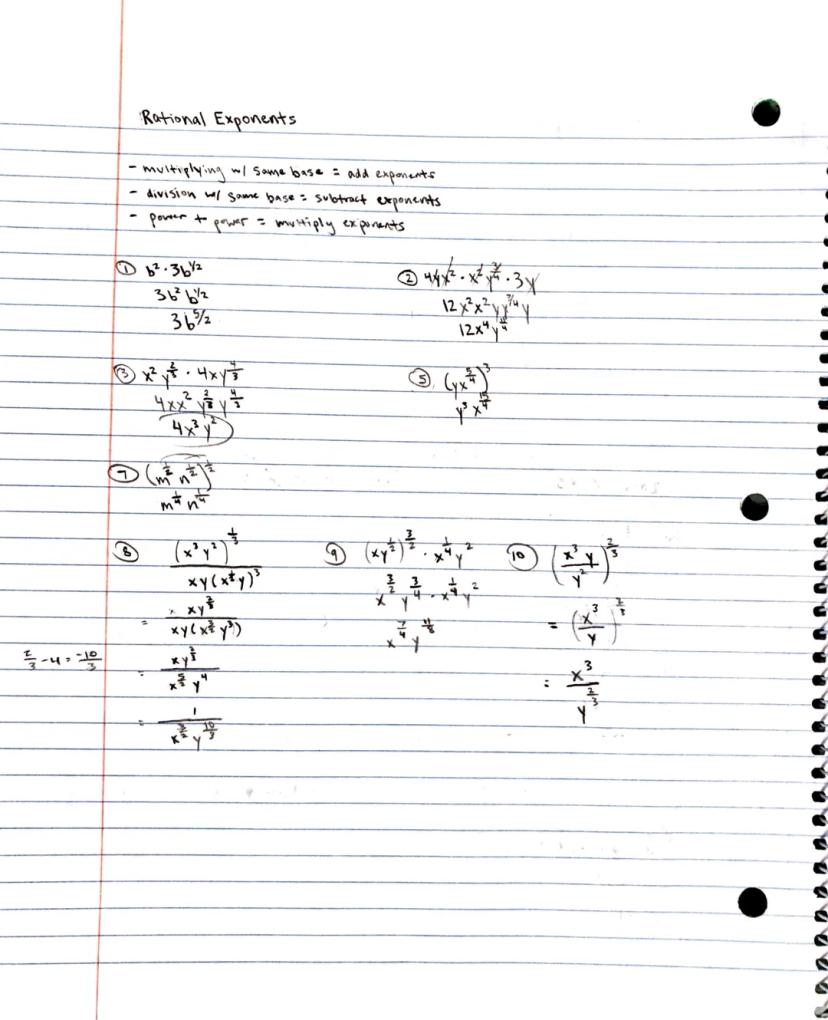 Rational Exponents
- multiplying w/ same base = add exponents
- division w/ same base = subtract exponents
- power to power = multiply exponents
① b² · 3b^{1/2}
3b² b^{1/2}
3b^{5/2}
②
12x²x² y y^{7/4} y
12x⁴ y
③ x² y^{2/3} · 4xy^{4/3}
4xx² y^{2/3} y^{4/3}
4x³y²
⑤ (yx^{5/4})³
y³ x^{15/4}
⑦ (m^{1/2} n^{1/2})^{1/2}
m^{1/4} n^{1/4}
⑧ (x³y²)^{1/3} / xy(x^{1/2}y)³
= xy^{2/3} / xy(x^{3/2} y³)
2/3 - 4 = -10/3
= xy^{2/3} / x^{5/2} y⁴
= 1 / x^{3/2} y^{10/3}
⑨ (xy^{1/2})^{3/2} · x^{1/4} y²
x^{3/2} y^{3/4} · x^{1/4} y²
x^{7/4} y
⑩ (x³y / y²)^{2/3}
= (x³ / y)^{2/3}
= x³ / y^{2/3}